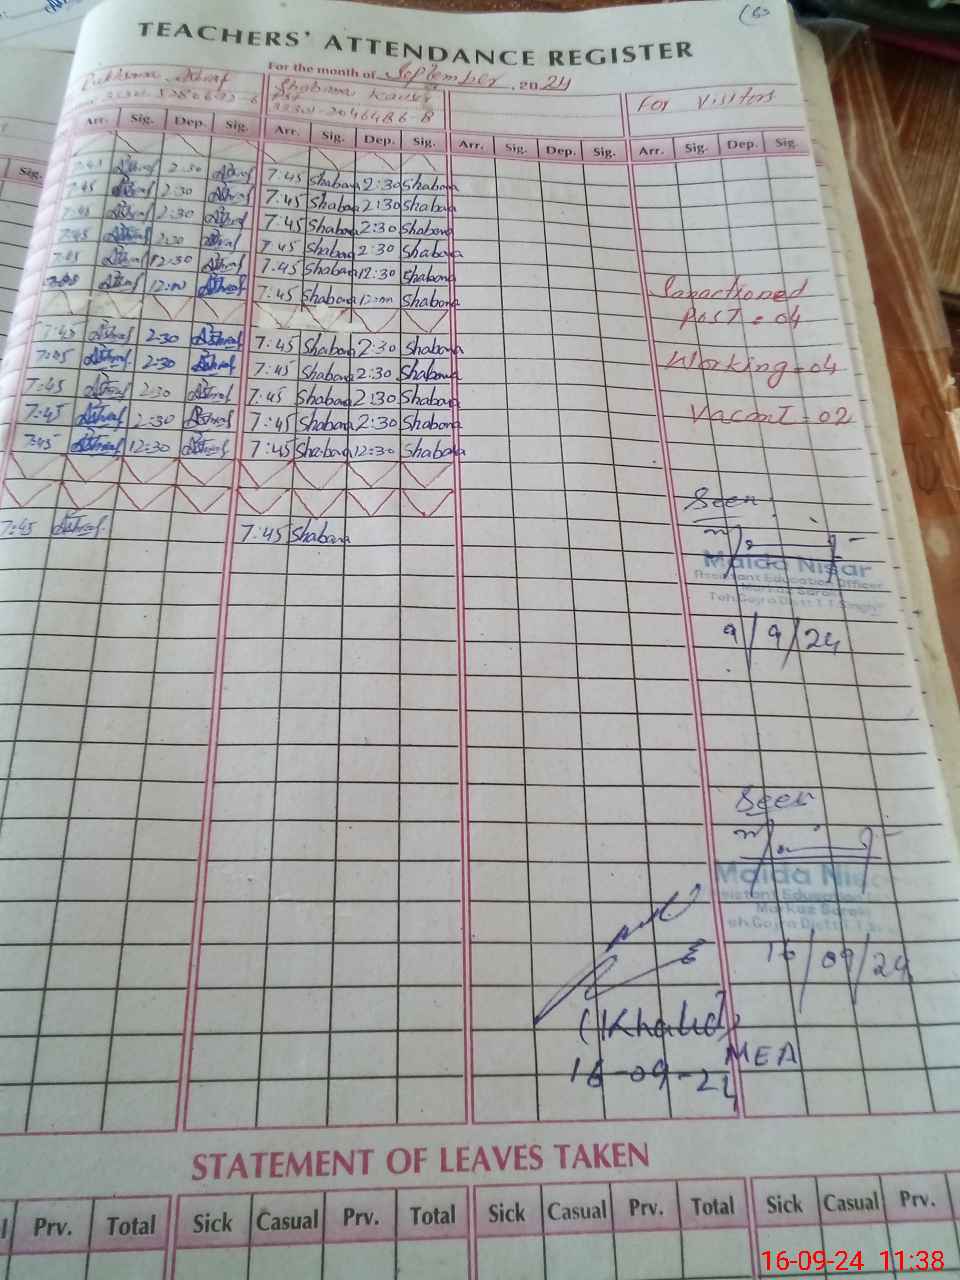 TEACHERS' ATTENDANCE REGISTER
For the month of September 2024
Ashraf
Shabana Kausar
For Visitors
Arr. Sig. Dep. Sig. Arr. Sig. Dep. Sig. Arr. Sig. Dep. Sig. Arr. Sig. Dep. Sig.
Sig.
7:45 Ashraf 2:30 Ashraf 7:45 Shabana 2:30 Shabana
7:45 Ashraf 2:30 Ashraf 7:45 Shabana 2:30 Shabana
7:45 Ashraf 2:30 Ashraf 7:45 Shabana 2:30 Shabana
7:45 Ashraf 2:30 Ashraf 7:45 Shabana 2:30 Shabana
7:45 Ashraf 12:30 Ashraf 7:45 Shabana 12:30 Shabana
Ashraf 12:00 Ashraf 7:45 Shabana 12:00 Shabana
7:45 Ashraf 2:30 Ashraf 7:45 Shabana 2:30 Shabana
7:45 Ashraf 2:30 Ashraf 7:45 Shabana 2:30 Shabana
7:45 Ashraf 2:30 Ashraf 7:45 Shabana 2:30 Shabana
7:45 Ashraf 2:30 Ashraf 7:45 Shabana 2:30 Shabana
7:45 Ashraf 12:30 Ashraf 7:45 Shabana 12:30 Shabana
7:45 Ashraf 7:45 Shabana
Sanactioned
Post = 04
Working = 04
Vacant = 02
Seen
Maida Nisar
Assistant Education Officer
Teh Gojra Distt T.T.Singh
9/9/24
Seen
Maida Nisar
Assistant Education
Markaz
Teh Gojra Distt T.T.S
16/09/24
(Khalid)
MEA
16-09-24
STATEMENT OF LEAVES TAKEN
Prv. Total Sick Casual Prv. Total Sick Casual Prv. Total Sick Casual Prv.
16-09-24 11:38